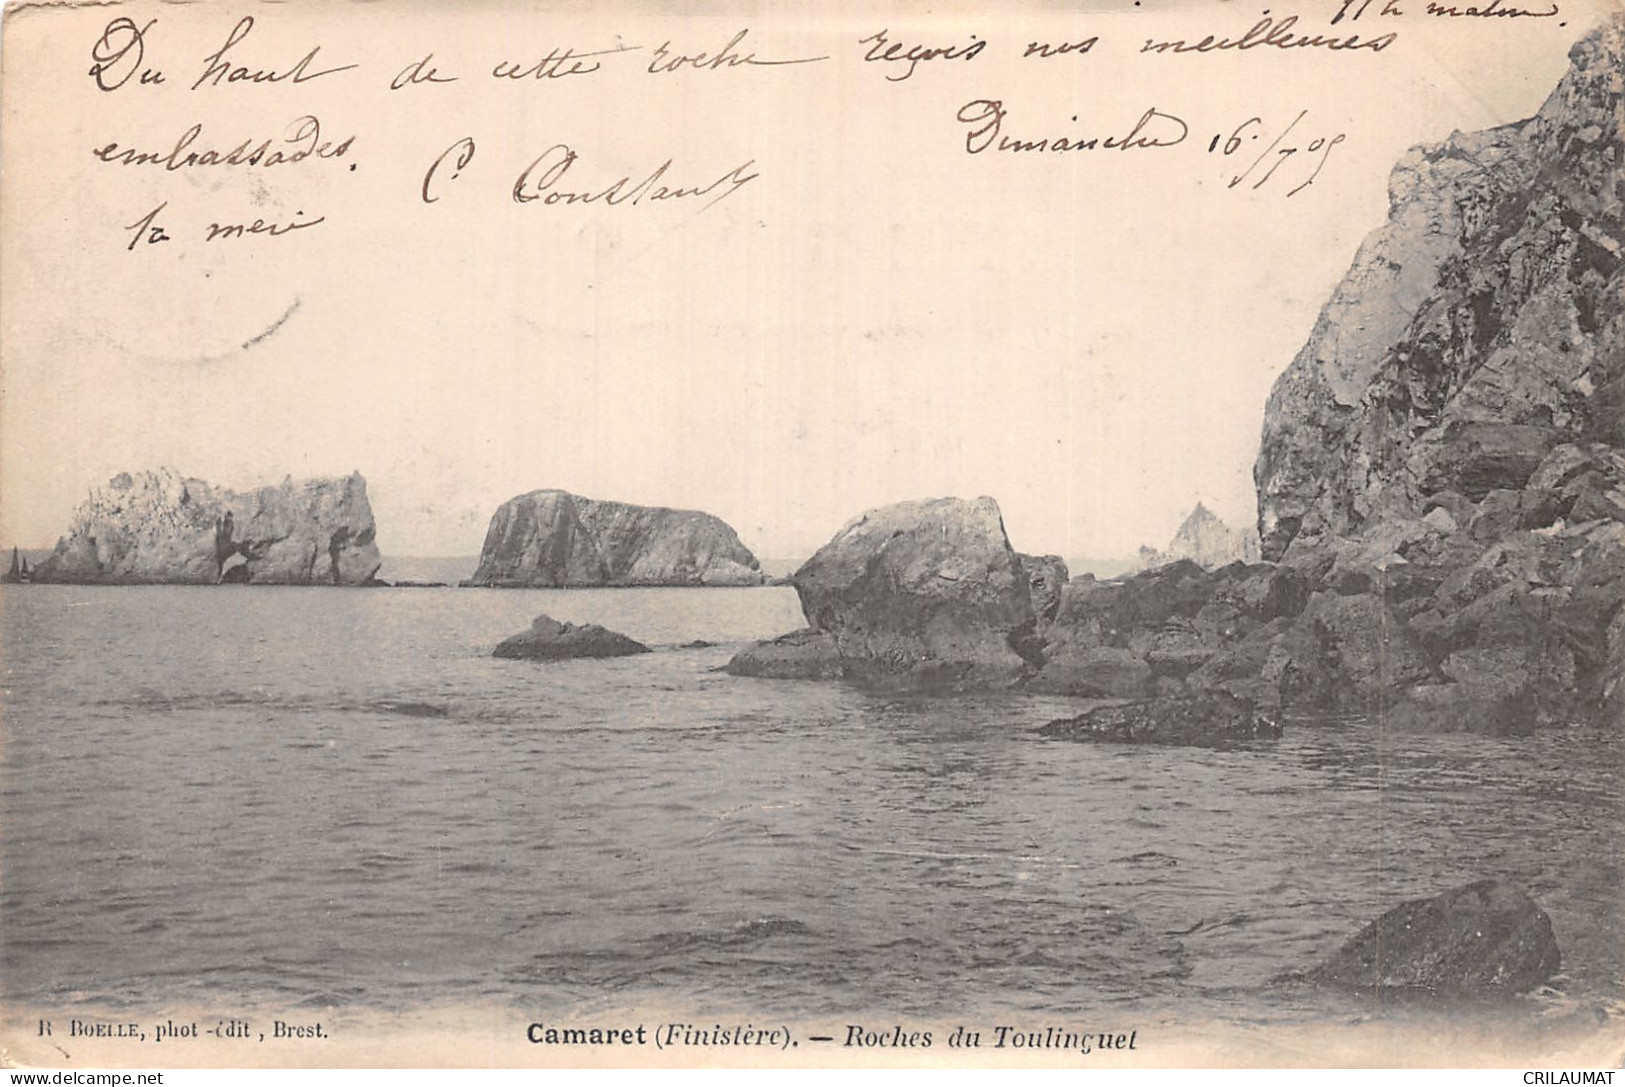 11h matin.
Du haut de cette roche reçois nos meilleures
embrassades.
Dimanche 16/7 05
C Constant
ta meri
R BOELLE, phot-édit, Brest.
Camaret (Finistère). — Roches du Toulinguet
www.delcampe.net
CRILAUMAT